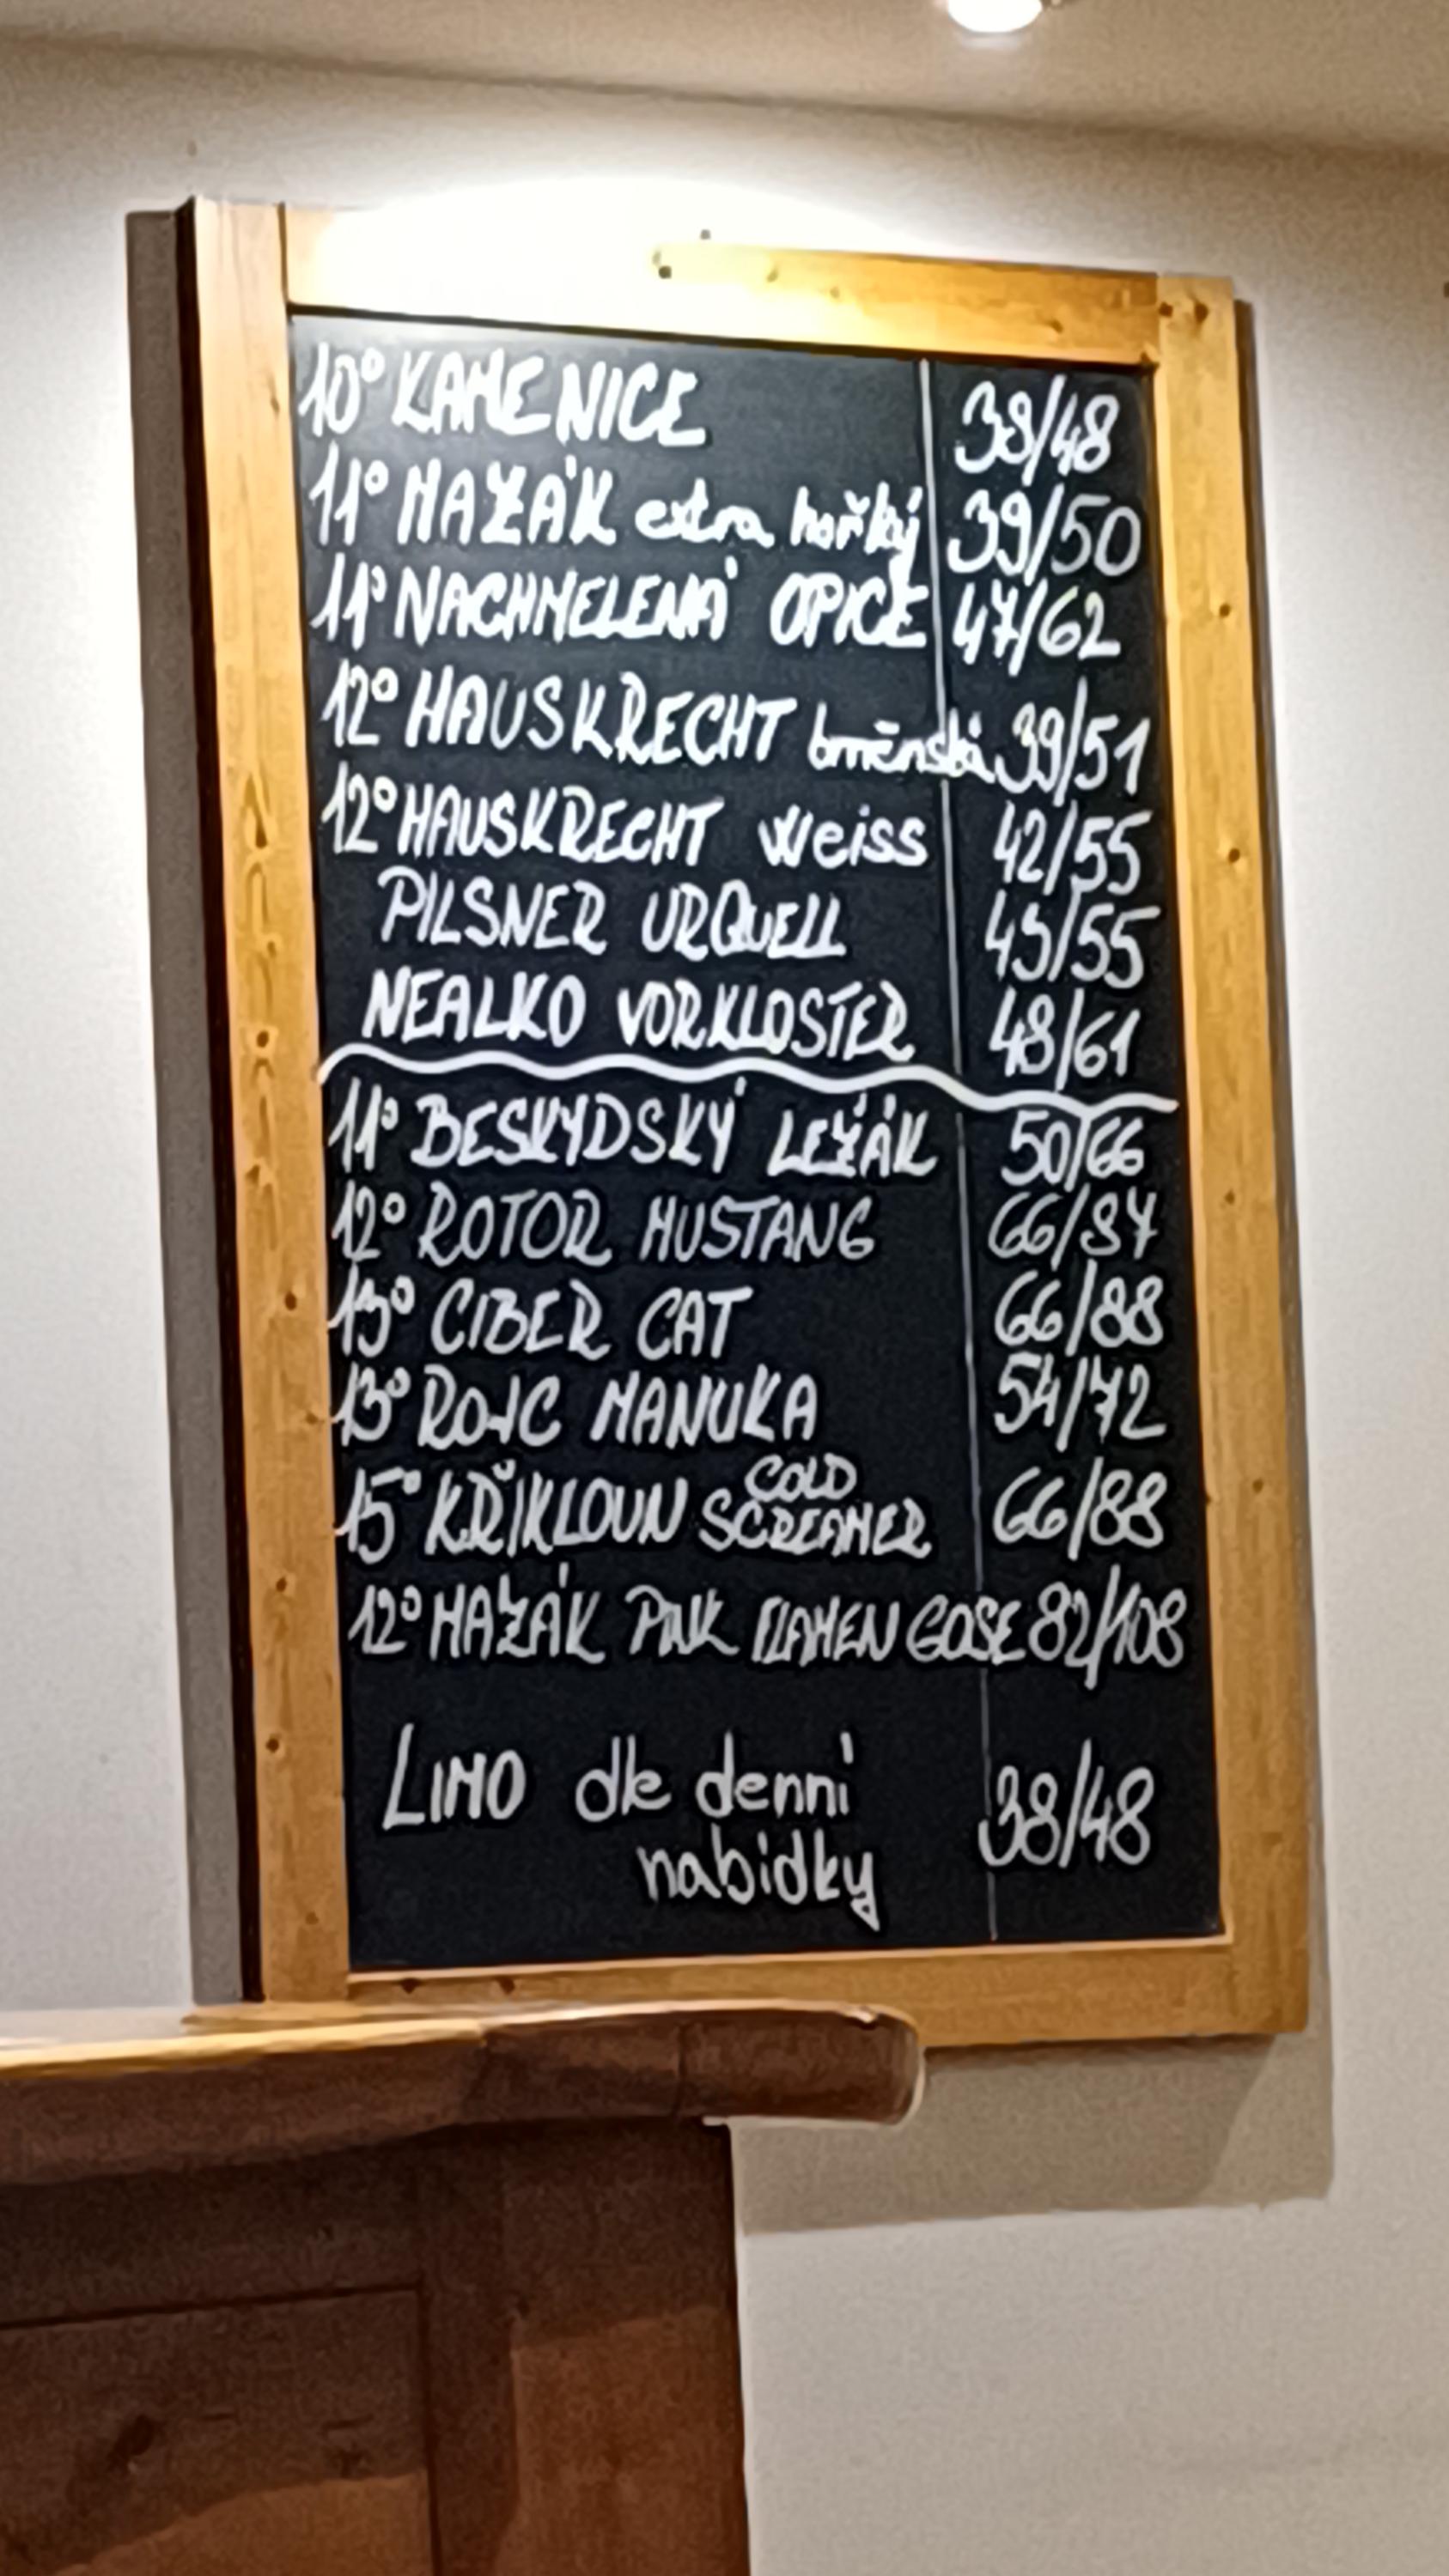 10° KAMENICE 39/48
11° MAZÁK extra hořký 39/50
11° NACHMELENÁ OPICE 47/62
12° HAUSKRECHT brněnská 39/51
12° HAUSKRECHT Weiss 42/55
PILSNER URQUELL 45/55
NEALKO VORKLOSTER 48/61
11° BESKYDSKÝ LEŽÁK 50/66
12° ROTOR MUSTANG 66/87
13° CIBER CAT 66/88
13° ROJC MANUKA 54/72
15° KŘIKLOUN COLD SCREAMER 66/88
12° MAZÁK PINK FLAMENGOSE 82/108
LIMO dle denní 38/48
nabídky